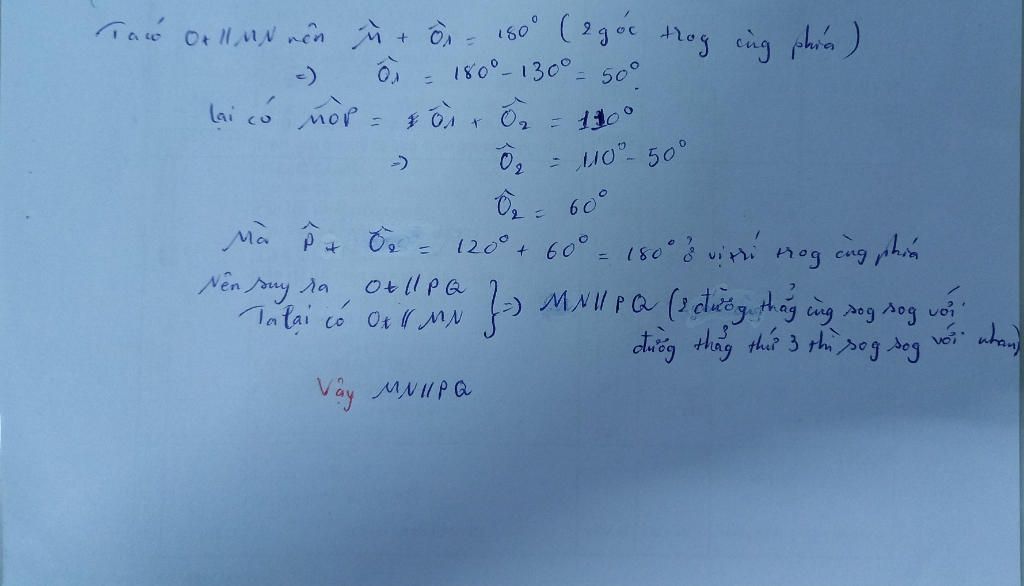 Ta có Ot // MN nên M̂ + Ô1 = 180° ( 2 góc trog cùg phía )
=) Ô1 = 180° - 130° = 50°.
lại có M̂OP = Ô1 + Ô2 = 110°
=) Ô2 = 110° - 50°
Ô2 = 60°
Mà P̂ + Ô2 = 120° + 60° = 180° ở vị trí trog cùg phía
Nên suy ra Ot // PQ
Ta lại có Ot // MN } =) MN // PQ ( 2 đườg thẳg cùg sog sog với
đườg thẳg thứ 3 thì sog sog với nhau)
Vậy MN // PQ